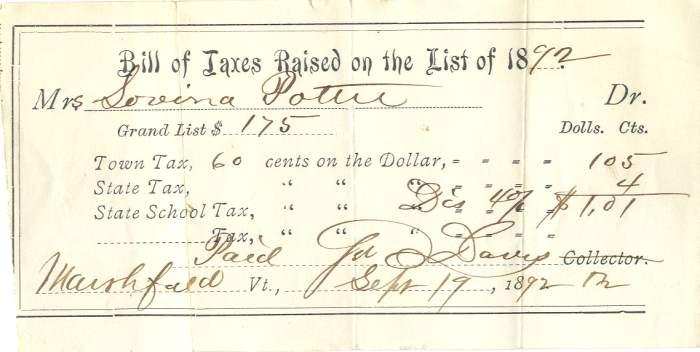 Bill of Taxes Raised on the List of 1892.
Mrs Lovina Potter Dr.
Grand List $ 175 Dolls. Cts.
Town Tax, 60 cents on the Dollar, = = = = 105
State Tax, " " " = = = = 4
State School Tax, " " " Dis 4% = = $1.01
Tax, " " " = = = =
Paid Davis Collector.
Marshfield Vt., Sept 19, 1892